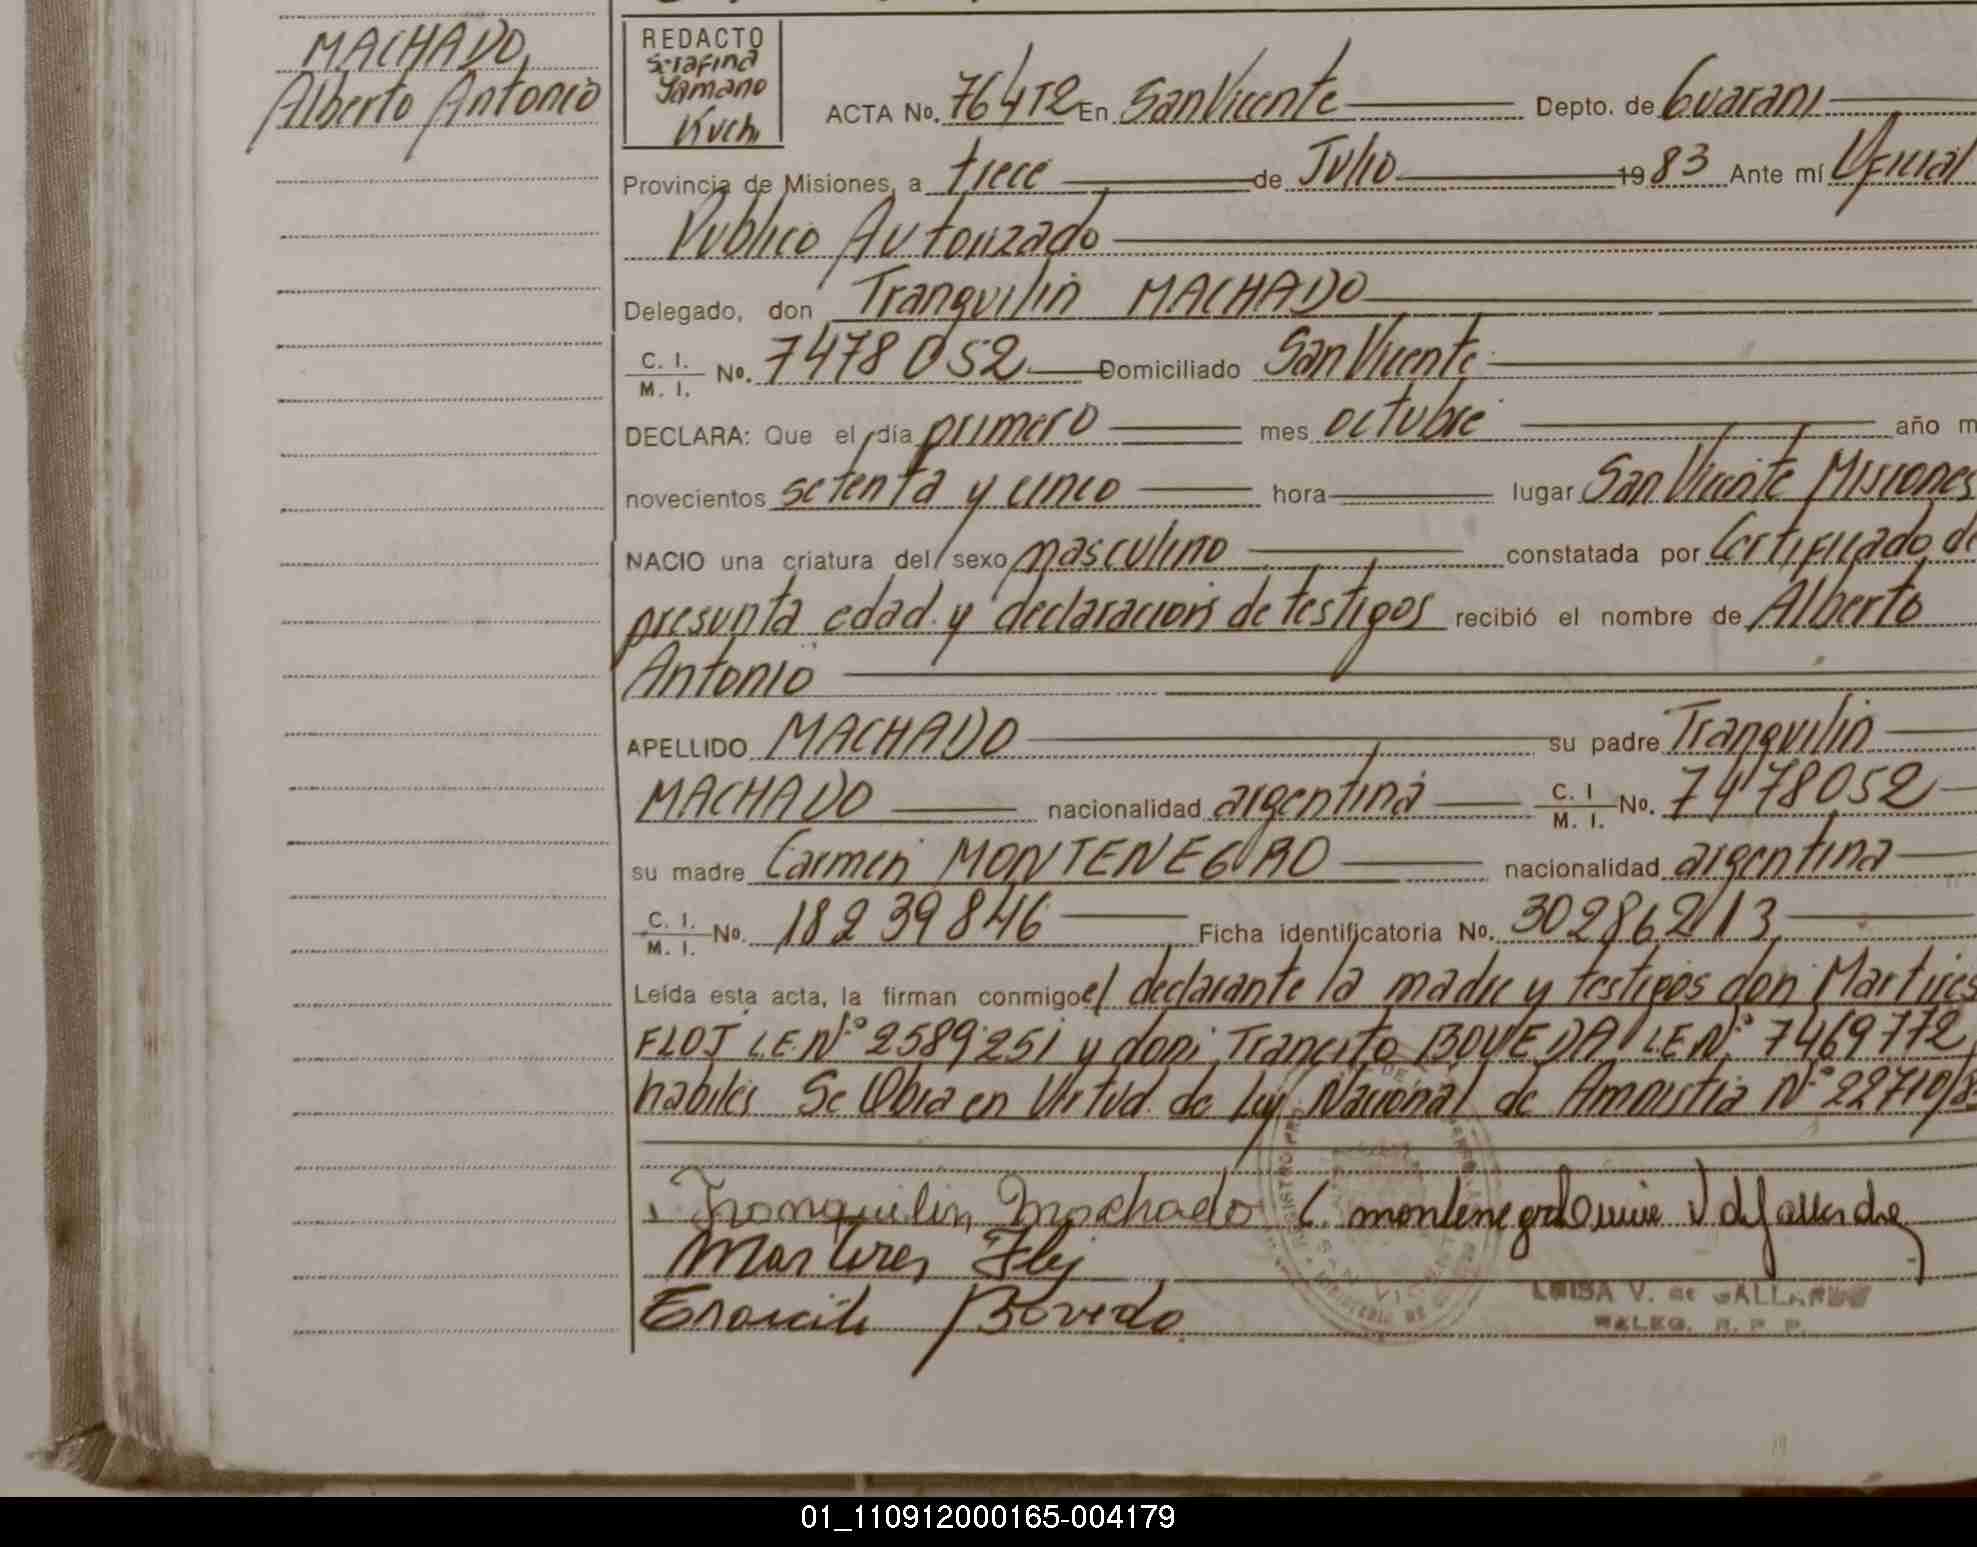 MACHADO
Alberto Antonio
REDACTO
Serafina
Yamano
Kuch
ACTA No. 764T2 En San Vicente Depto. de Guarani
Provincia de Misiones, a trece de Julio 1983 Ante mí Oficial
Publico Autorizado
Delegado, don Tranquilin MACHADO
C. I.
M. I. No. 7478052 Domiciliado San Vicente
DECLARA: Que el día primero mes octubre año m
novecientos setenta y cinco hora lugar San Vicente Misiones
NACIO una criatura del sexo masculino constatada por Certificado de
presunta edad y declaracion de testigos recibió el nombre de Alberto
Antonio
APELLIDO MACHADO su padre Tranquilin
MACHADO nacionalidad argentina C. I
M. I. No. 7478052
su madre Carmen MONTENEGRO nacionalidad argentina
C. I.
M. I. No. 18239846 Ficha identificatoria No. 302862/13
Leída esta acta, la firman conmigo el declarante la madre y testigos don Martires
FLOJ L.E.Nº 2589251 y don Trancito BOVEDA L.E.Nº 7469772
habiles Se Obra en Virtud de Ley Nacional de Amnistia Nº 22710/8
Tranquilin Machado C. montenegro
Martires Floj
Boveda
LUISA V. de GALLARDO
DELEG. R. P. P.
01_110912000165-004179